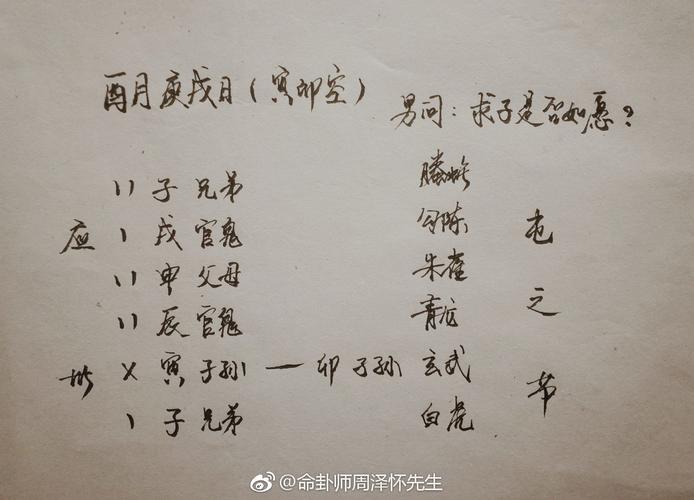 酉月庚戌日(寅卯空)
男问:求子是否如愿?
〃 子 兄弟 螣蛇
应 丶 戌 官鬼 勾陈
〃 申 父母 朱雀
〃 辰 官鬼 青龙
世 × 寅 子孙 — 卯 子孙 玄武
丶 子 兄弟 白虎
屯之节
@命卦师周泽怀先生